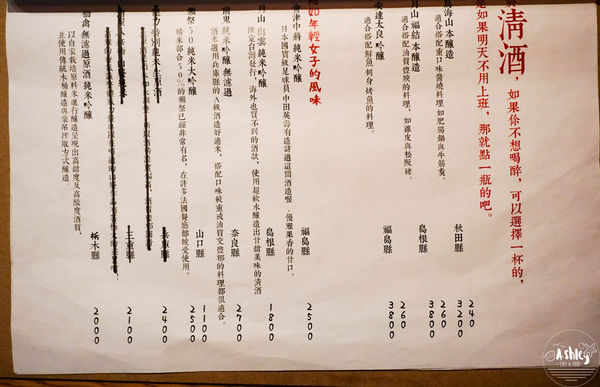 清酒，如果你不想喝醉，可以選擇一杯的，
是如果明天不用上班，那就點一瓶的吧。
海山 本釀造 秋田縣 240 3200
適合搭配重口味醬燒料理 如肥腸鍋與牛筋煲。
月山福結 本釀造 島根縣 260 3800
適合搭配油質豐腴的料理，如雞皮與松阪豬。
安達太良 吟釀 福島縣 260 3800
適合搭配鮮魚刺身烤魚的料理。
宛如年輕女子的風味
會津中將 純米吟釀 福島縣 2500
日本國寶級足球員中田英壽有造訪過這間酒造喔，優雅果香的甘口。
月山 出雲 純米吟釀 島根縣 1800
限定台灣發行，海外也買不到的酒款，使用超軟水釀造出甘甜美味的清酒
純米吟釀 無濾過 奈良縣 2700
酒米選用兵庫縣的A級酒造好適米，搭配口味較重或油質交豐郁的料理都很適合。
獺祭50 純米大吟釀 山口縣 1100 2500
精米部合50%的獺祭已經非常有名，在許多法國餐廳都被受使用。
兵庫縣 2400
三重縣 2100
仙禽 無濾過原酒 純米吟釀 栃木縣 2000
以自家栽培原料米進行釀造呈現出高甜度及高酸度酒質，
並使用傳統木桶釀造與朵吊搾取方式釀造。
Ashley
LIFE & FOOD